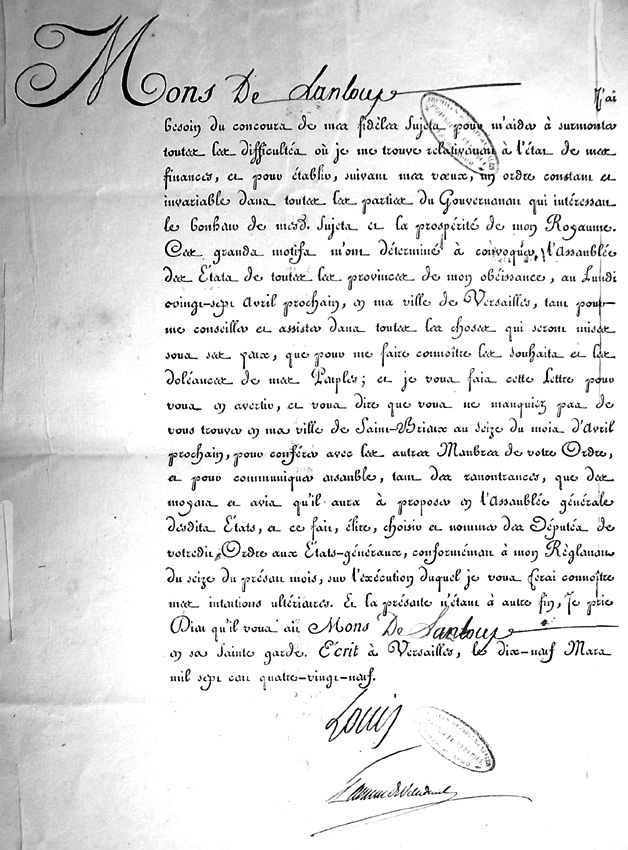 Mons De Lanloup J'ai
besoin du concours de mes fidèles Sujets pour m'aider à surmonter
toutes les difficultés où je me trouve relativement à l'état de mes
finances, et pour établir, suivant mes vœux, un ordre constant et
invariable dans toutes les parties du Gouvernement qui intéressent
le bonheur de mesd. Sujets et la prospérité de mon Royaume.
Ces grands motifs m'ont déterminé à convoquer l'Assemblée
des États de toutes les provinces de mon obéissance, au Lundi
vingt-sept Avril prochain, en ma ville de Versailles, tant pour
me conseiller et assister dans toutes les choses qui seront mises
sous ses yeux, que pour me faire connoître les souhaits et les
doléances de mes Peuples; et je vous fais cette Lettre pour
vous en avertir, et vous dire que vous ne manquiez pas de
vous trouver en ma ville de Saint-Brieux au seize du mois d'Avril
prochain, pour conférer avec les autres Membres de votre Ordre,
et pour communiquer ensemble, tant des remontrances, que des
moyens et avis qu'il aura à proposer en l'Assemblée générale
desdits États, et ce fait, élire, choisir et nommer des Députés de
votredit Ordre aux États-généraux, conformément à mon Règlement
du seize du présent mois, sur l'exécution duquel je vous ferai connoître
mes intentions ultérieures. Et la présente n'étant à autre fin, Je prie
Dieu qu'il vous ait Mons De Lanloup
en sa Sainte garde. Écrit à Versailles, le dix-neuf Mars
mil sept cent quatre-vingt-neuf.
Louis